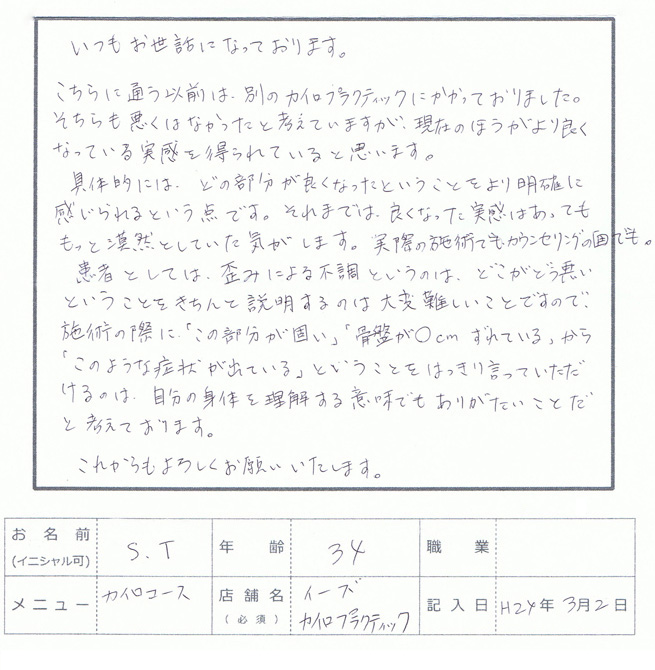 いつもお世話になっております。
こちらに通う以前は、別のカイロプラクティックにかかっておりました。
そちらも悪くはなかったと考えていますが、現在のほうがより良く
なっている実感を得られていると思います。
具体的には、どの部分が良くなったということをより明確に
感じられるという点です。それまでは、良くなった実感はあっても
もっと漠然としていた気がします。実際の施術でもカウンセリングの面でも。
患者としては、歪みによる不調というのは、どこがどう悪い
ということをきちんと説明するのは大変難しいことですので、
施術の際に、「この部分が固い」「骨盤が〇cmずれている」から
「このような症状が出ている」ということをはっきり言っていただ
けるのは、自分の身体を理解する意味でもありがたいことだ
と考えております。
これからもよろしくお願いいたします。
お名前 (イニシャル可) S.T 年齢 34 職業
メニュー カイロコース 店舗名 (必須) イーズ カイロプラクティック 記入日 H24年3月2日